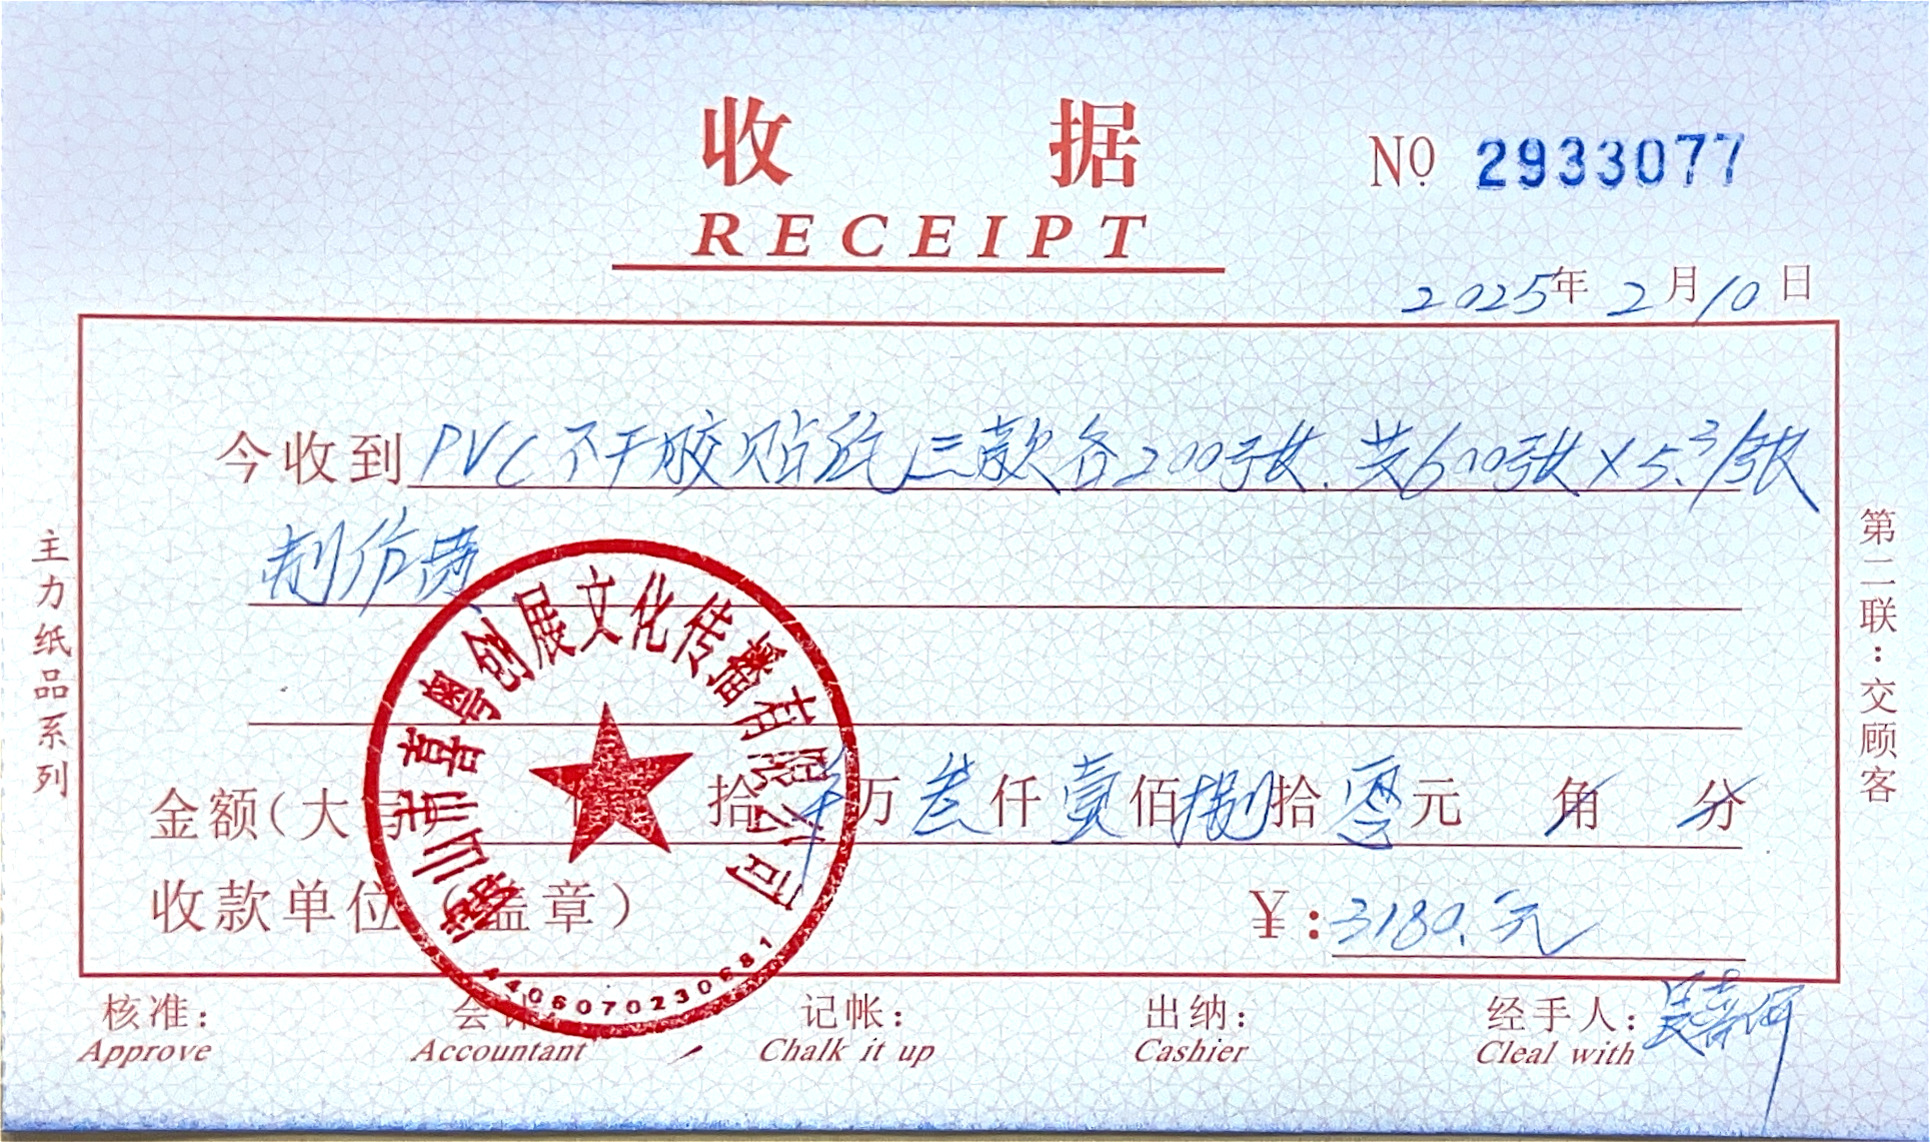 收 据
RECEIPT
№ 2933077
2025年 2月10日
今收到PVC不干胶贴纸三款各200张.共600张×5.3/张
制作费
金额(大写) 拾 万叁仟壹佰捌拾零元 角 分
收款单位(盖章)
¥:3180.元
佛山市喜粤创展文化传播有限公司
4406070230681
核准: 会计: 记帐: 出纳: 经手人:
Approve Accountant Chalk it up Cashier Cleal with
主力纸品系列
第二联:交顾客